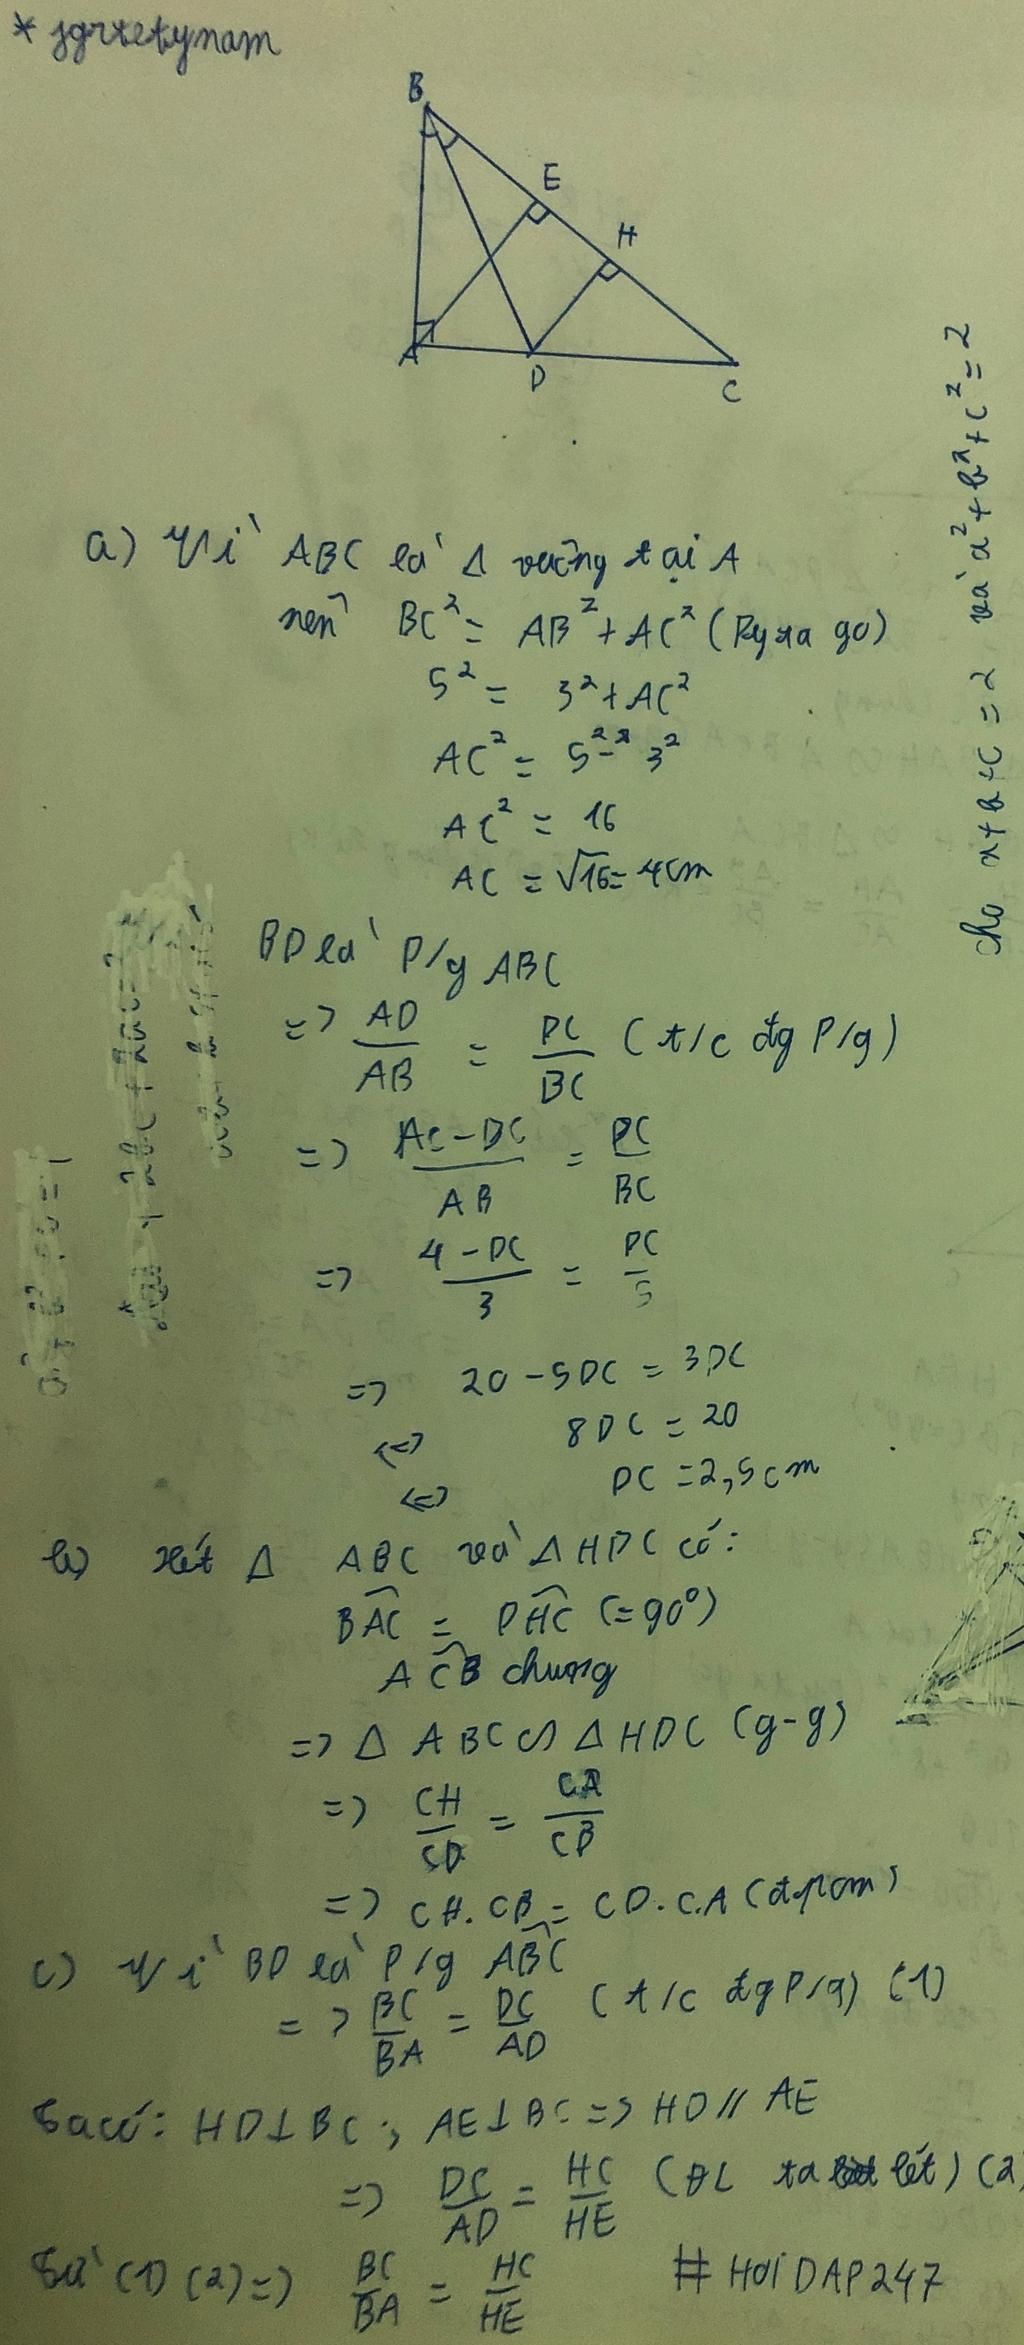 * jgrtetynam
B
E
H
A
D
C
a) Vì ABC là Δ vuông tại A
nên BC² = AB² + AC² (Pytago)
5² = 3² + AC²
AC² = 5² - 3²
AC² = 16
AC = √16 = 4cm
BD là P/g ABC
=> AD/AB = DC/BC (t/c đg P/g)
=> AC-DC/AB = DC/BC
=> 4-DC/3 = DC/5
=> 20 - 5DC = 3DC
<=> 8DC = 20
<=> DC = 2,5cm
b) Xét Δ ABC và Δ HDC có:
BAC = DHC (=90°)
ACB chung
=> Δ ABC ∽ Δ HDC (g-g)
=> CH/CD = CA/CB
=> CH.CB = CD.CA (đpcm)
c) Vì BD là P/g ABC
=> BC/BA = DC/AD (t/c đg P/g) (1)
Ta có: HD⊥BC ; AE⊥BC => HD // AE
=> DC/AD = HC/HE (ĐL ta lét) (2)
Từ (1) (2) => BC/BA = HC/HE
# HOIDAP247
cho a+b+c = 2 và a²+b²+c² = 2